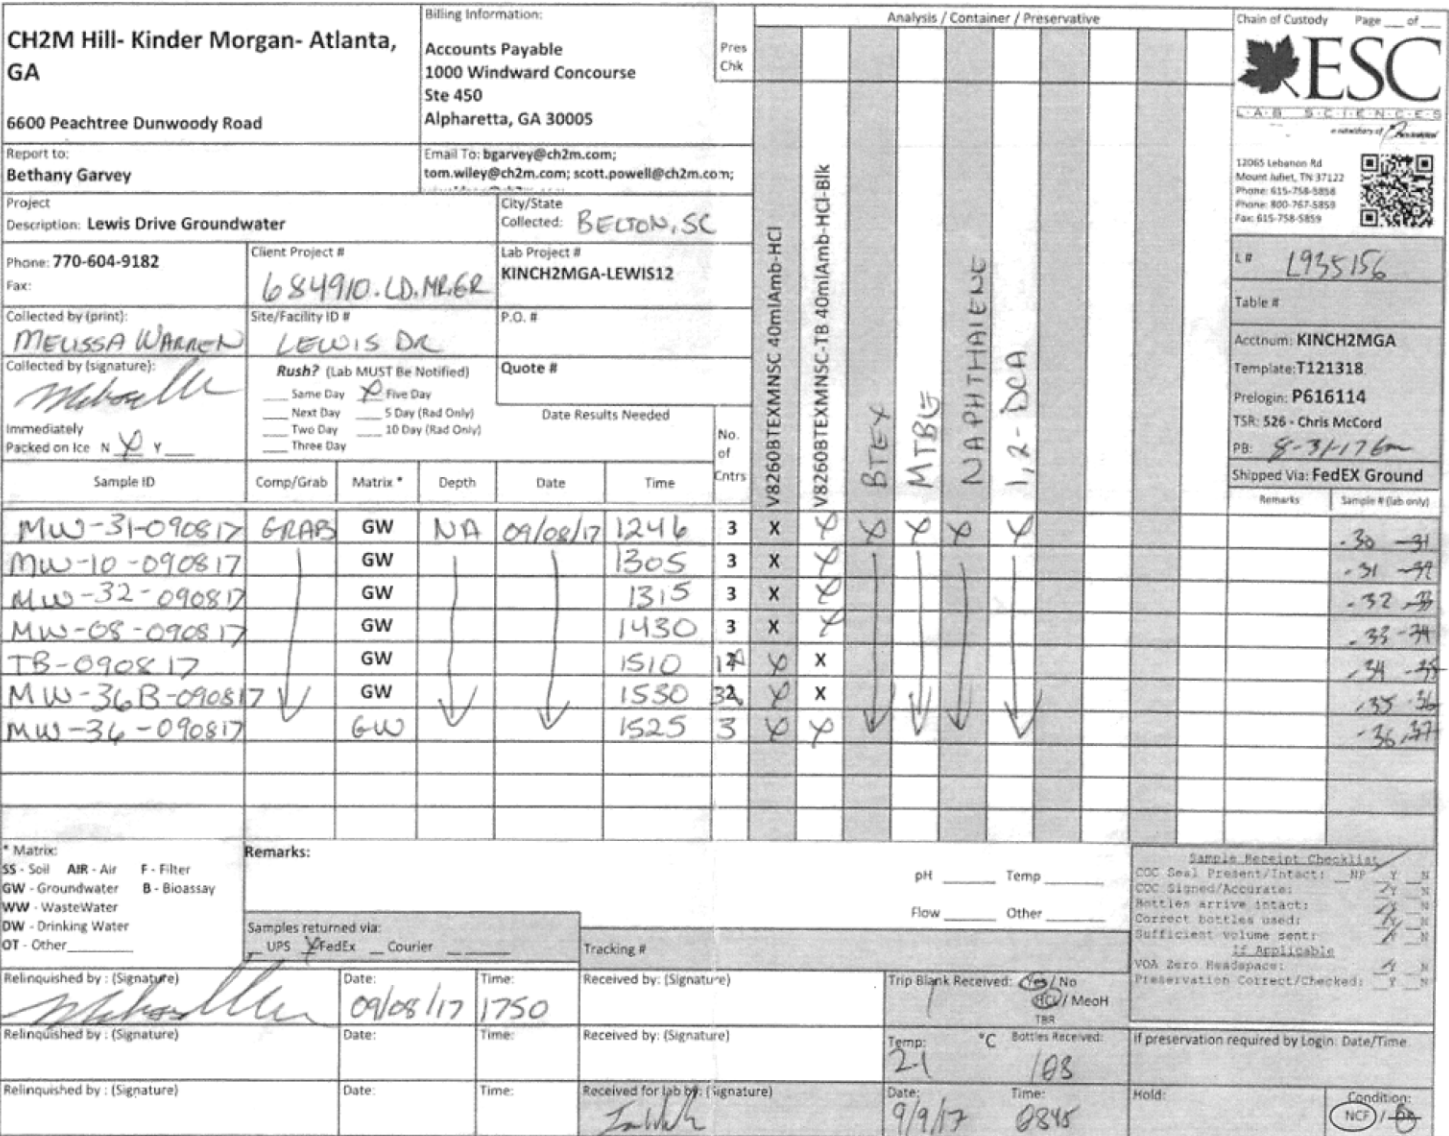 CH2M Hill- Kinder Morgan- Atlanta,
GA
6600 Peachtree Dunwoody Road
Billing Information:
Accounts Payable
1000 Windward Concourse
Ste 450
Alpharetta, GA 30005
Pres
Chk
Analysis / Container / Preservative
Chain of Custody Page ___ of ___
ESC
L·A·B S·C·I·E·N·C·E·S
a subsidiary of
12065 Lebanon Rd
Mount Juliet, TN 37122
Phone: 615-758-5858
Phone: 800-767-5859
Fax: 615-758-5859
Report to:
Bethany Garvey
Email To: bgarvey@ch2m.com;
tom.wiley@ch2m.com; scott.powell@ch2m.com;
Project
Description: Lewis Drive Groundwater
City/State
Collected: BELTON, SC
Phone: 770-604-9182
Fax:
Client Project #
684910.LD.MR.GR
Lab Project #
KINCH2MGA-LEWIS12
Collected by (print):
MELISSA WARREN
Site/Facility ID #
LEWIS DR
P.O. #
Collected by (signature):
Rush? (Lab MUST Be Notified)
___ Same Day X Five Day
___ Next Day ___ 5 Day (Rad Only)
___ Two Day ___ 10 Day (Rad Only)
___ Three Day
Quote #
Date Results Needed
Immediately
Packed on Ice N X Y ___
No.
of
Cntrs
V8260BTEXMNSC 40mlAmb-HCl
V8260BTEXMNSC-TB 40mlAmb-HCl-Blk
BTEX
MTBE
NAPHTHALENE
1,2-DCA
L # L935156
Table #
Acctnum: KINCH2MGA
Template: T121318
Prelogin: P616114
TSR: 526 - Chris McCord
PB: 8-31-17
Shipped Via: FedEX Ground
Remarks Sample # (lab only)
Sample ID Comp/Grab Matrix * Depth Date Time
MW-31-090817 GRAB GW NA 09/08/17 1246 3 X X X X X X -30 -31
MW-10-090817 GW 1305 3 X X -31
MW-32-090817 GW 1315 3 X X -32 -33
MW-08-090817 GW 1430 3 X X -33 -34
TB-090817 GW 1510 X X -34 -35
MW-36B-090817 GW 1530 X X -35 -36
MW-36-090817 GW 1525 3 X X -36 -37
* Matrix:
SS - Soil AIR - Air F - Filter
GW - Groundwater B - Bioassay
WW - WasteWater
DW - Drinking Water
OT - Other
Remarks:
pH ___ Temp ___
Flow ___ Other ___
Samples returned via:
___ UPS X FedEx ___ Courier
Tracking #
Sample Receipt Checklist
COC Seal Present/Intact: NP Y N
COC Signed/Accurate: Y N
Bottles arrive intact: Y N
Correct bottles used: Y N
Sufficient volume sent: Y N
If Applicable
VOA Zero Headspace: Y N
Preservation Correct/Checked: Y N
Relinquished by : (Signature)
Date: 09/08/17
Time: 1750
Received by: (Signature)
Trip Blank Received: Yes / No
HCL / MeoH
TBR
Relinquished by : (Signature)
Date:
Time:
Received by: (Signature)
Temp: °C
Bottles Received: 108
If preservation required by Login: Date/Time
Relinquished by : (Signature)
Date:
Time:
Received for lab by: (Signature)
Date: 9/9/17
Time: 0845
Hold:
Condition:
NCF / OK